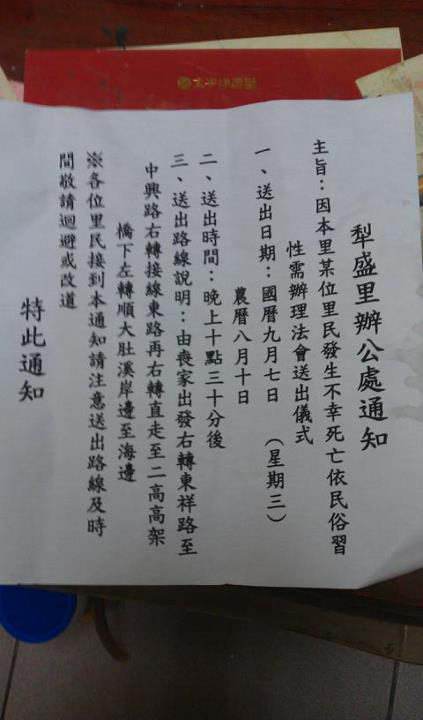 太平洋房屋
犁盛里辦公處通知
主旨：因本里某位里民發生不幸死亡依民俗習
性需辦理法會送出儀式
一、送出日期：國曆九月七日　（星期三）
農曆八月十日
二、送出時間：晚上十點三十分後
三、送出路線說明：由喪家出發右轉東祥路至
中興路右轉接線東路再右轉直走至二高高架
橋下左轉順大肚溪岸邊至海邊
※各位里民接到本通知請注意送出路線及時
間敬請迴避或改道
特此通知